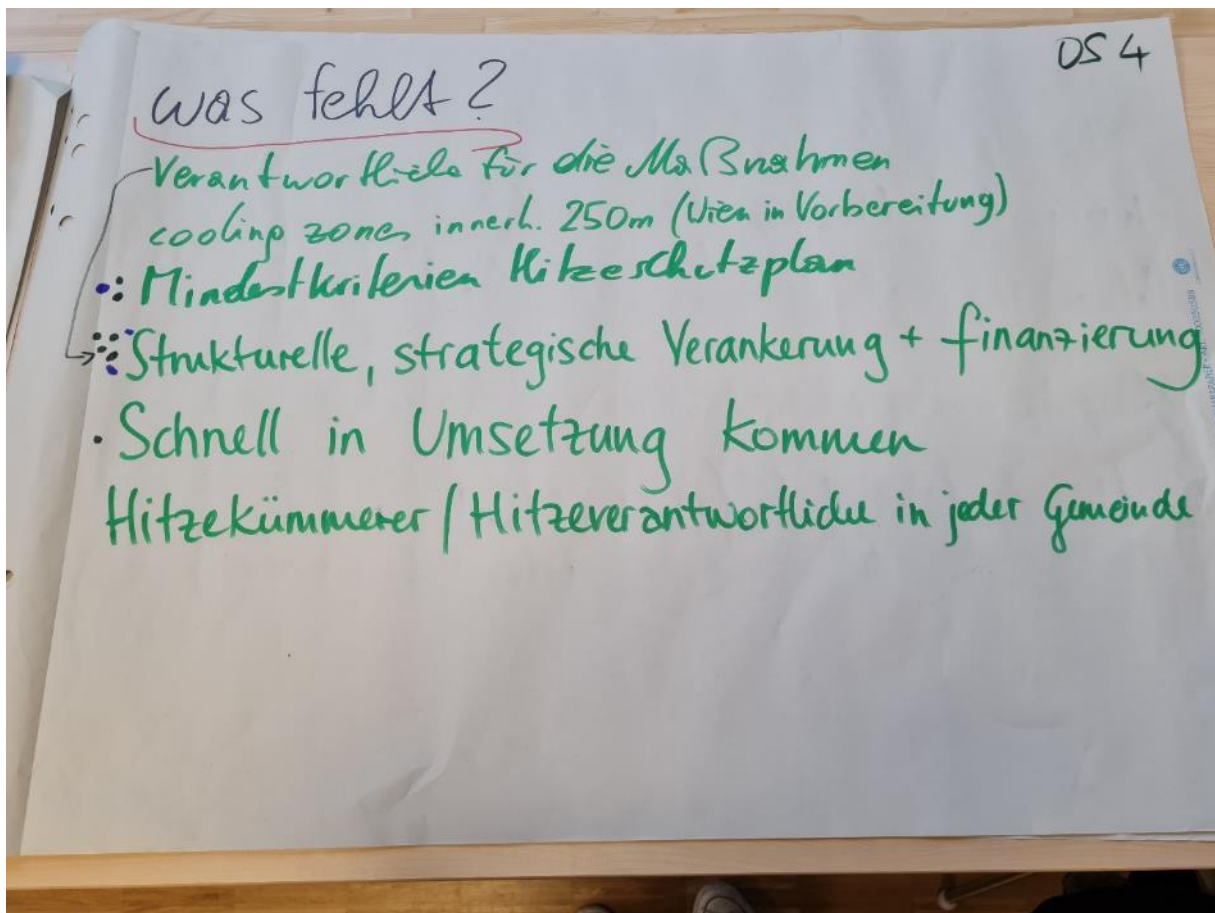 OS 4
was fehlt?
Verantwortliche für die Maßnahmen
cooling zones innerh. 250m (Wien in Vorbereitung)
Mindestkriterien Hitzeschutzplan
Strukturelle, strategische Verankerung + finanzierung
Schnell in Umsetzung kommen
Hitzekümmerer / Hitzeverantwortliche in jeder Gemeinde